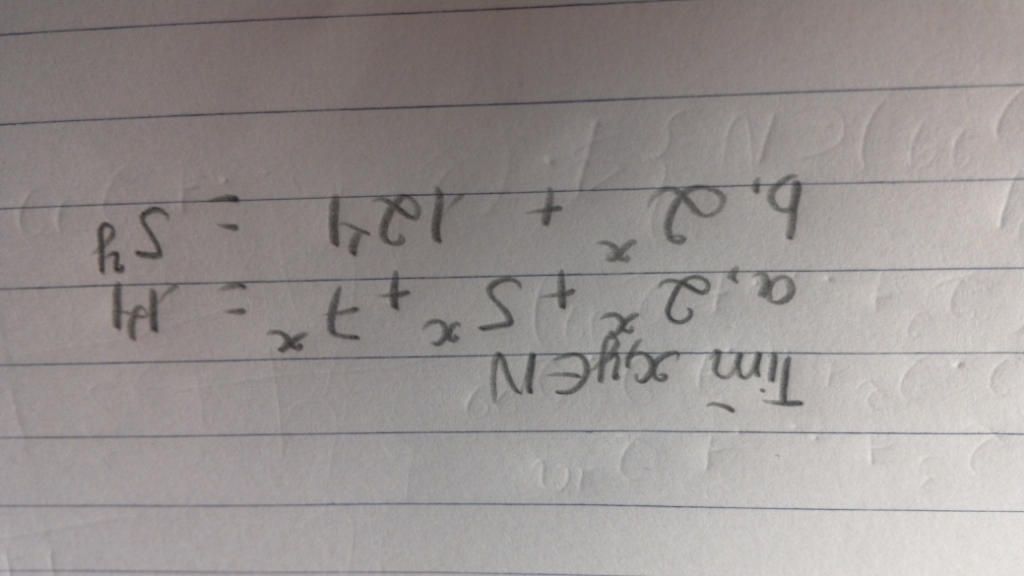 Tìm x,y∈N
a, 2ˣ + 5ˣ + 7ˣ = 14
b, 2ˣ + 124 = 5ʸ